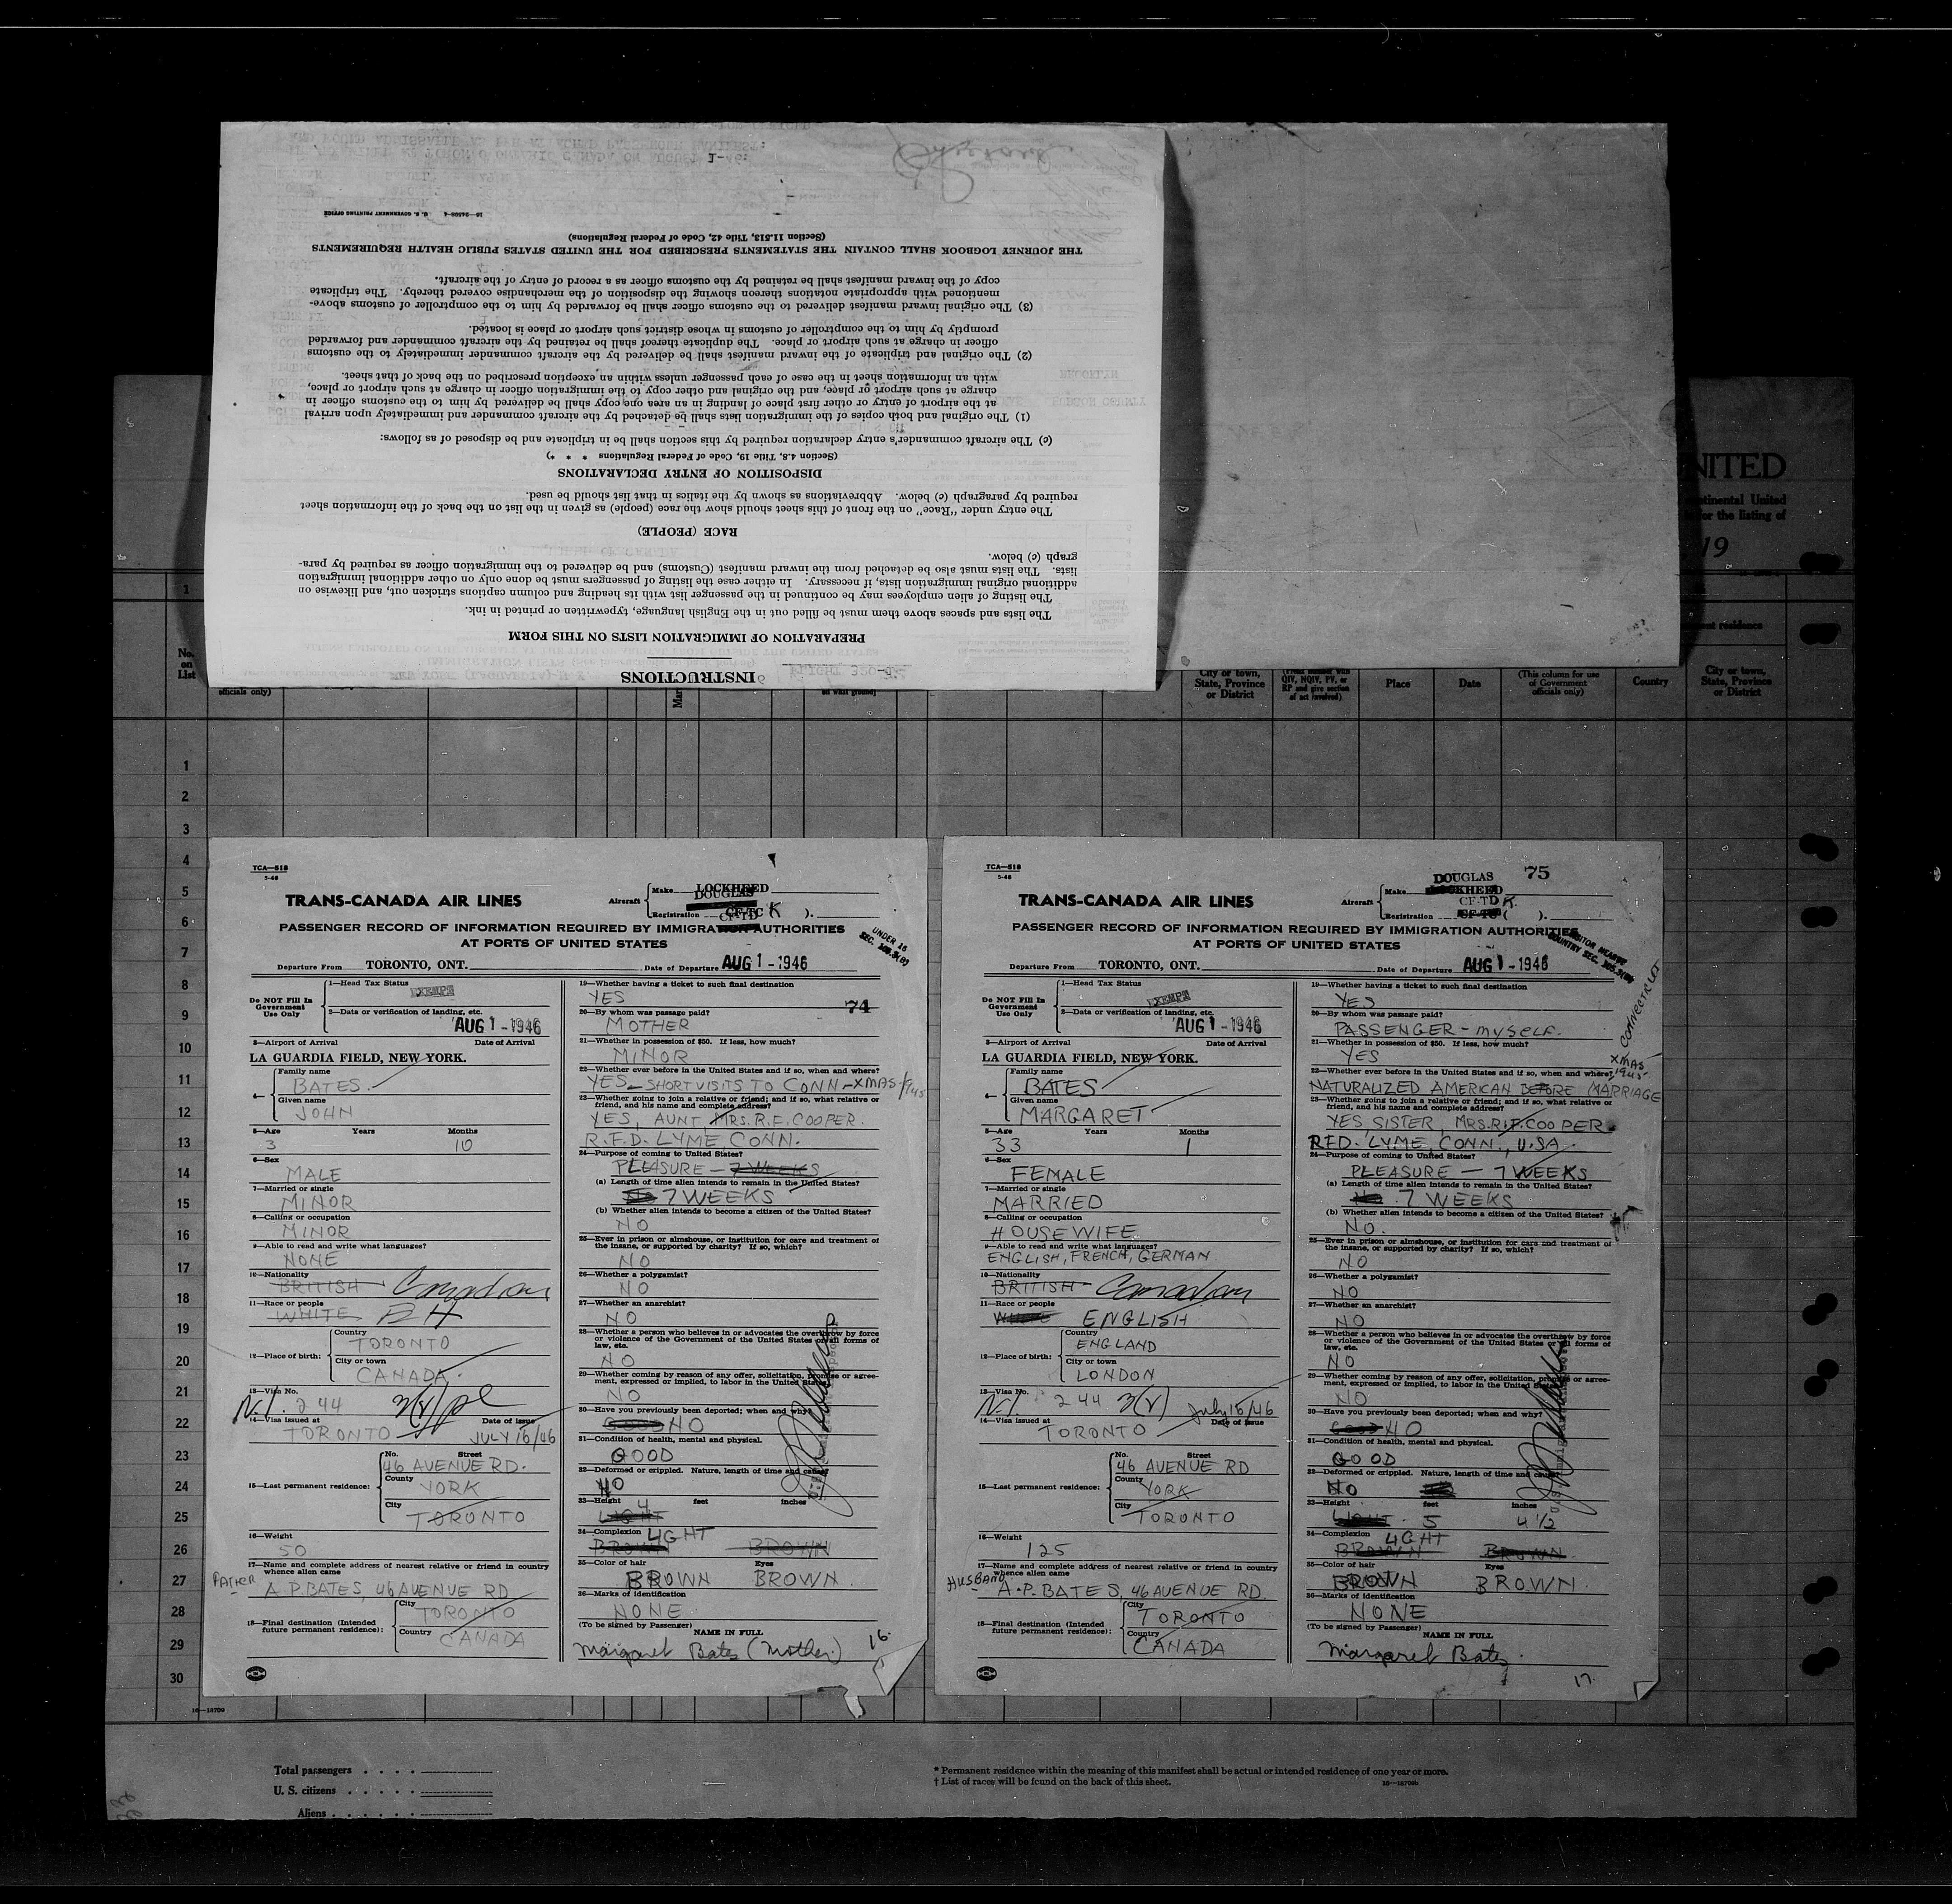 INSTRUCTIONS
PREPARATION OF IMMIGRATION LISTS ON THIS FORM
The lists and spaces above them must be filled out in the English language, typewritten or printed in ink.
The listing of alien employees may be continued in the passenger list with its heading and column captions stricken out, and likewise on
additional original immigration lists, if necessary. In either case the listing of passengers must be done only on other additional immigration
lists. The lists must also be detached from the inward manifest (Customs) and be delivered to the immigration officer as required by para-
graph (c) below.
RACE (PEOPLE)
The entry under "Race" on the front of this sheet should show the race (people) as given in the list on the back of the information sheet
required by paragraph (c) below. Abbreviations as shown by the italics in that list should be used.
DISPOSITION OF ENTRY DECLARATIONS
(Section 4.8, Title 19, Code of Federal Regulations * * *)
(c) The aircraft commander's entry declaration required by this section shall be in triplicate and be disposed of as follows:
(1) The original and both copies of the immigration lists shall be detached by the aircraft commander and immediately upon arrival
at the airport of entry or other first place of landing in an area one copy shall be delivered by him to the customs officer in
charge at such airport or place, and the original and other copy to the immigration officer in charge at such airport or place,
with an information sheet in the case of each passenger unless within an exception prescribed on the back of that sheet.
(2) The original and triplicate of the inward manifest shall be delivered by the aircraft commander immediately to the customs
officer in charge at such airport or place. The duplicate thereof shall be retained by the aircraft commander and forwarded
promptly by him to the comptroller of customs in whose district such airport or place is located.
(3) The original inward manifest delivered to the customs officer shall be forwarded by him to the comptroller of customs above-
mentioned with appropriate notations thereon showing the disposition of the merchandise covered thereby. The triplicate
copy of the inward manifest shall be retained by the customs officer as a record of entry of the aircraft.
THE JOURNEY LOGBOOK SHALL CONTAIN THE STATEMENTS PRESCRIBED FOR THE UNITED STATES PUBLIC HEALTH REQUIREMENTS
(Section 11.513, Title 42, Code of Federal Regulations)
U. S. GOVERNMENT PRINTING OFFICE
NITED
ntinental United
for the listing of
19
1
No.
on
List
officials only)
City or town,
State, Province
or District
QIV, NQIV, PV, or
RP and give section
of act involved)
Place
Date
(This column for use
of Government
officials only)
Country
City or town,
State, Province
or District
1
2
3
4
5
6
7
8
9
10
11
12
13
14
15
16
17
18
19
20
21
22
23
24
25
26
27
28
29
30
TCA—518
5-46
TRANS-CANADA AIR LINES
Aircraft
Make LOCKHEED
DOUGLAS
Registration CF-TC K ).
PASSENGER RECORD OF INFORMATION REQUIRED BY IMMIGRATION AUTHORITIES
AT PORTS OF UNITED STATES
UNDER 16
Departure From TORONTO, ONT. Date of Departure AUG 1 - 1946
Do NOT Fill In
Government
Use Only
1—Head Tax Status
EXEMPT
2—Data or verification of landing, etc.
AUG 1 - 1946
3—Airport of Arrival Date of Arrival
LA GUARDIA FIELD, NEW YORK.
4—
Family name
BATES
Given name
JOHN
5—Age Years Months
3 10
6—Sex
MALE
7—Married or single
MINOR
8—Calling or occupation
MINOR
9—Able to read and write what languages?
NONE
10—Nationality
BRITISH Canadian
11—Race or people
WHITE
12—Place of birth:
Country
TORONTO
City or town
CANADA.
13—Visa No.
N.I. 244
14—Visa issued at Date of issue
TORONTO JULY 16/46
15—Last permanent residence:
No. Street
46 AVENUE RD.
County
YORK
City
TORONTO
16—Weight
50
17—Name and complete address of nearest relative or friend in country
whence alien came
FATHER A.P. BATES, 46 AVENUE RD
18—Final destination (Intended
future permanent residence):
City
TORONTO
Country
CANADA
19—Whether having a ticket to such final destination
YES
74
20—By whom was passage paid?
MOTHER
21—Whether in possession of $50. If less, how much?
MINOR
22—Whether ever before in the United States and if so, when and where?
YES — SHORT VISITS TO CONN — XMAS/1945
23—Whether going to join a relative or friend; and if so, what relative or
friend, and his name and complete address?
YES, AUNT, MRS. R.F. COOPER.
R.F.D. LYME, CONN.
24—Purpose of coming to United States?
PLEASURE — 7 WEEKS
(a) Length of time alien intends to remain in the United States?
7 WEEKS
(b) Whether alien intends to become a citizen of the United States?
NO
25—Ever in prison or almshouse, or institution for care and treatment of
the insane, or supported by charity? If so, which?
NO
26—Whether a polygamist?
NO
27—Whether an anarchist?
NO
28—Whether a person who believes in or advocates the overthrow by force
or violence of the Government of the United States or all forms of
law, etc.
NO
29—Whether coming by reason of any offer, solicitation, promise or agree-
ment, expressed or implied, to labor in the United States
NO
30—Have you previously been deported; when and why?
GOOD NO
31—Condition of health, mental and physical.
GOOD
32—Deformed or crippled. Nature, length of time and cause?
NO
33—Height feet inches
LIGHT 4
34—Complexion
LIGHT
BROWN BROWN
35—Color of hair Eyes
BROWN BROWN.
36—Marks of identification
NONE
(To be signed by Passenger)
NAME IN FULL
Margaret Bates (Mother) 16.
TCA—518
5-46
75
TRANS-CANADA AIR LINES
Aircraft
Make DOUGLAS
LOCKHEED
CF-TD K.
Registration CF-TC ( ).
PASSENGER RECORD OF INFORMATION REQUIRED BY IMMIGRATION AUTHORITIES
AT PORTS OF UNITED STATES
Departure From TORONTO, ONT. Date of Departure AUG 1 - 1946
Do NOT Fill In
Government
Use Only
1—Head Tax Status
EXEMPT
2—Data or verification of landing, etc.
AUG 1 - 1946
3—Airport of Arrival Date of Arrival
LA GUARDIA FIELD, NEW YORK.
4—
Family name
BATES
Given name
MARGARET
5—Age Years Months
33 1
6—Sex
FEMALE
7—Married or single
MARRIED
8—Calling or occupation
HOUSEWIFE
9—Able to read and write what languages?
ENGLISH, FRENCH, GERMAN
10—Nationality
BRITISH Canadian
11—Race or people
WHITE ENGLISH
12—Place of birth:
Country
ENGLAND
City or town
LONDON
13—Visa No.
N.I. 244 July 15/46
14—Visa issued at Date of issue
TORONTO
15—Last permanent residence:
No. Street
46 AVENUE RD
County
YORK
City
TORONTO
16—Weight
125
17—Name and complete address of nearest relative or friend in country
whence alien came
HUSBAND A.P. BATES, 46 AVENUE RD.
18—Final destination (Intended
future permanent residence):
City
TORONTO
Country
CANADA
19—Whether having a ticket to such final destination
YES
20—By whom was passage paid?
PASSENGER — myself.
21—Whether in possession of $50. If less, how much?
YES
CONNECTICUT
XMAS
1945
22—Whether ever before in the United States and if so, when and where?
NATURALIZED AMERICAN BEFORE MARRIAGE
23—Whether going to join a relative or friend; and if so, what relative or
friend, and his name and complete address?
YES SISTER, MRS. R.F. COOPER
RFD. LYME, CONN., U.S.A.
24—Purpose of coming to United States?
PLEASURE — 7 WEEKS
(a) Length of time alien intends to remain in the United States?
7 WEEKS
(b) Whether alien intends to become a citizen of the United States?
NO.
25—Ever in prison or almshouse, or institution for care and treatment of
the insane, or supported by charity? If so, which?
NO
26—Whether a polygamist?
NO
27—Whether an anarchist?
NO
28—Whether a person who believes in or advocates the overthrow by force
or violence of the Government of the United States or all forms of
law, etc.
NO
29—Whether coming by reason of any offer, solicitation, promise or agree-
ment, expressed or implied, to labor in the United States
NO
30—Have you previously been deported; when and why?
GOOD NO
31—Condition of health, mental and physical.
GOOD
32—Deformed or crippled. Nature, length of time and cause?
NO
33—Height feet inches
LIGHT 5 4 1/2
34—Complexion
LIGHT
BROWN BROWN
35—Color of hair Eyes
BROWN BROWN.
36—Marks of identification
NONE
(To be signed by Passenger)
NAME IN FULL
Margaret Bates.
17
Total passengers . . . .
U. S. citizens . . . . .
Aliens . . . . .
* Permanent residence within the meaning of this manifest shall be actual or intended residence of one year or more.
† List of races will be found on the back of this sheet.